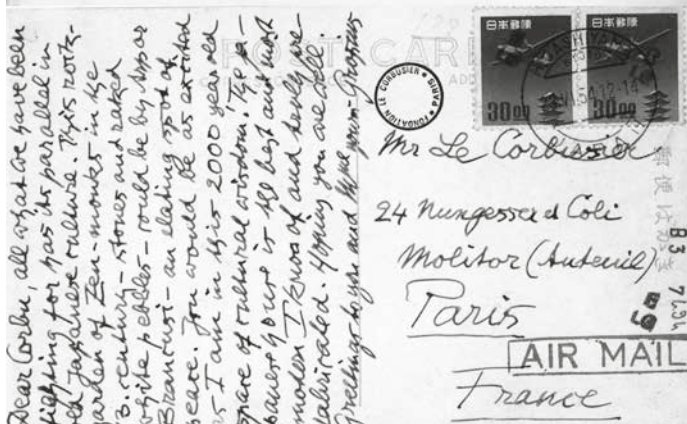 Dear Corbu, all what we have been
fighting for has its parallel in
old Japanese culture. This rock-
garden of Zen-monks in the
13. century - stones and raked
white pebbles - could be by Arp or
Brancusi - an elating spot of
peace. You would be as excited
as I am in this 2000 year old
space of cultural wisdom! The Ja-
panese house is the best and most
modern I know of and really pre-
fabricated. Hoping you are well.
Greetings to you and Mme yours Gropius
POST CARD
FONDATION LE CORBUSIER • PARIS •
日本郵便
30 00
日本郵便
30 00
郵便はがき
Mr Le Corbusier
24 Nungesser et Coli
Molitor (Auteuil)
Paris
AIR MAIL
France